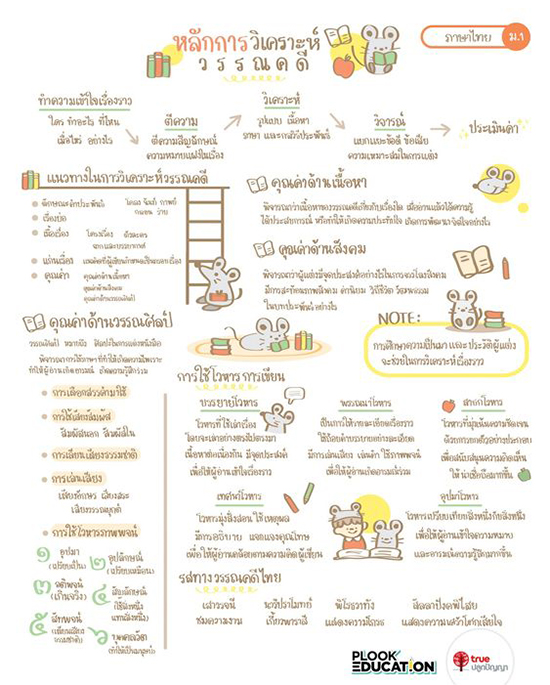 หลักการวิเคราะห์
วรรณคดี
ภาษาไทย ม.๑
ทำความเข้าใจเรื่องราว
ใคร ทำอะไร ที่ไหน
เมื่อไหร่ อย่างไร
ตีความ
ตีความสัญลักษณ์
ความหมายแฝงในเรื่อง
วิเคราะห์
รูปแบบ เนื้อหา
ภาษา และกลวิธีประพันธ์
วิจารณ์
แยกแยะข้อดี ข้อเสีย
ความเหมาะสมในการแต่ง
ประเมินค่า
แนวทางในการวิเคราะห์วรรณคดี
ลักษณะคำประพันธ์
โคลง ฉันท์ กาพย์
กลอน ร่าย
เรื่องย่อ
เนื้อเรื่อง
โครงเรื่อง ตัวละคร
ฉากและบรรยากาศ
แก่นเรื่อง
คุณค่า
คุณค่าด้านเนื้อหา
คุณค่าด้านสังคม
คุณค่าด้านวรรณศิลป์
คุณค่าด้านเนื้อหา
พิจารณาว่าเนื้อหาของวรรณคดีเกี่ยวกับเรื่องใด เมื่ออ่านแล้วได้ความรู้
ได้ประสบการณ์ หรือทำให้เกิดความประทับใจ เกิดการพัฒนาจิตใจอย่างไร
คุณค่าด้านสังคม
พิจารณาว่าผู้แต่งมีจุดประสงค์อย่างไรในการจรรโลงสังคม
มีการสะท้อนภาพสังคม ค่านิยม วิถีชีวิต วัฒนธรรม
ในบทประพันธ์อย่างไร
NOTE:
การศึกษาความเป็นมา และ ประวัติผู้แต่ง
จะช่วยในการวิเคราะห์เรื่องราว
คุณค่าด้านวรรณศิลป์
วรรณศิลป์ หมายถึง ศิลปะในการแต่งหนังสือ
พิจารณาการใช้ภาษาที่ทำให้เกิดความไพเราะ
ทำให้ผู้อ่านเกิดอารมณ์ เกิดความรู้สึกร่วม
การเลือกสรรคำมาใช้
การใช้เสียงสัมผัส
สัมผัสนอก สัมผัสใน
การเลียนเสียงธรรมชาติ
การเล่นเสียง
เสียงอักษร เสียงสระ
เสียงวรรณยุกต์
การใช้โวหารภาพพจน์
๑ อุปมา
(เปรียบเป็น)
๒ อุปลักษณ์
(เปรียบเหมือน)
๓ อติพจน์
(เกินจริง)
๔ สัญลักษณ์
(ใช้สิ่งหนึ่ง
แทนสิ่งหนึ่ง)
๕ สัทพจน์
(เลียนเสียง
ธรรมชาติ)
๖ บุคคลวัต
(ทำให้เป็นมนุษย์)
การใช้โวหาร การเขียน
บรรยายโวหาร
โวหารที่ใช้เล่าเรื่อง
โดยจะเล่าอย่างตรงไปตรงมา
เนื้อหาชัดเจน มีจุดประสงค์
เพื่อให้ผู้อ่านเข้าใจเรื่องราว
พรรณนาโวหาร
เป็นการให้รายละเอียดเรื่องราว
ใช้ถ้อยคำบรรยายอย่างละเอียด
มีการเล่นเสียง เล่นคำ ใช้ภาพพจน์
เพื่อให้ผู้อ่านเกิดอารมณ์ร่วม
สาธกโวหาร
โวหารที่มุ่งเน้นความชัดเจน
ด้วยการยกตัวอย่างประกอบ
เพื่อสนับสนุนความคิดเห็น
ให้น่าเชื่อถือมากขึ้น
เทศนาโวหาร
โวหารมุ่งสั่งสอน ใช้เหตุผล
มีการอธิบาย แจกแจงคุณโทษ
เพื่อให้ผู้อ่านคล้อยตามความคิดผู้เขียน
อุปมาโวหาร
โวหารเปรียบเทียบสิ่งหนึ่งกับสิ่งหนึ่ง
เพื่อให้ผู้อ่านเข้าใจความหมาย
และอารมณ์ความรู้สึกมากขึ้น
รสทางวรรณคดีไทย
เสาวรจนี
ชมความงาม
นารีปราโมทย์
เกี้ยวพาราสี
พิโรธวาทัง
แสดงความโกรธ
สัลลาปังคพิไสย
แสดงความเศร้าโศกเสียใจ
PLOOK
EDUCATION
true
ปลูกปัญญา